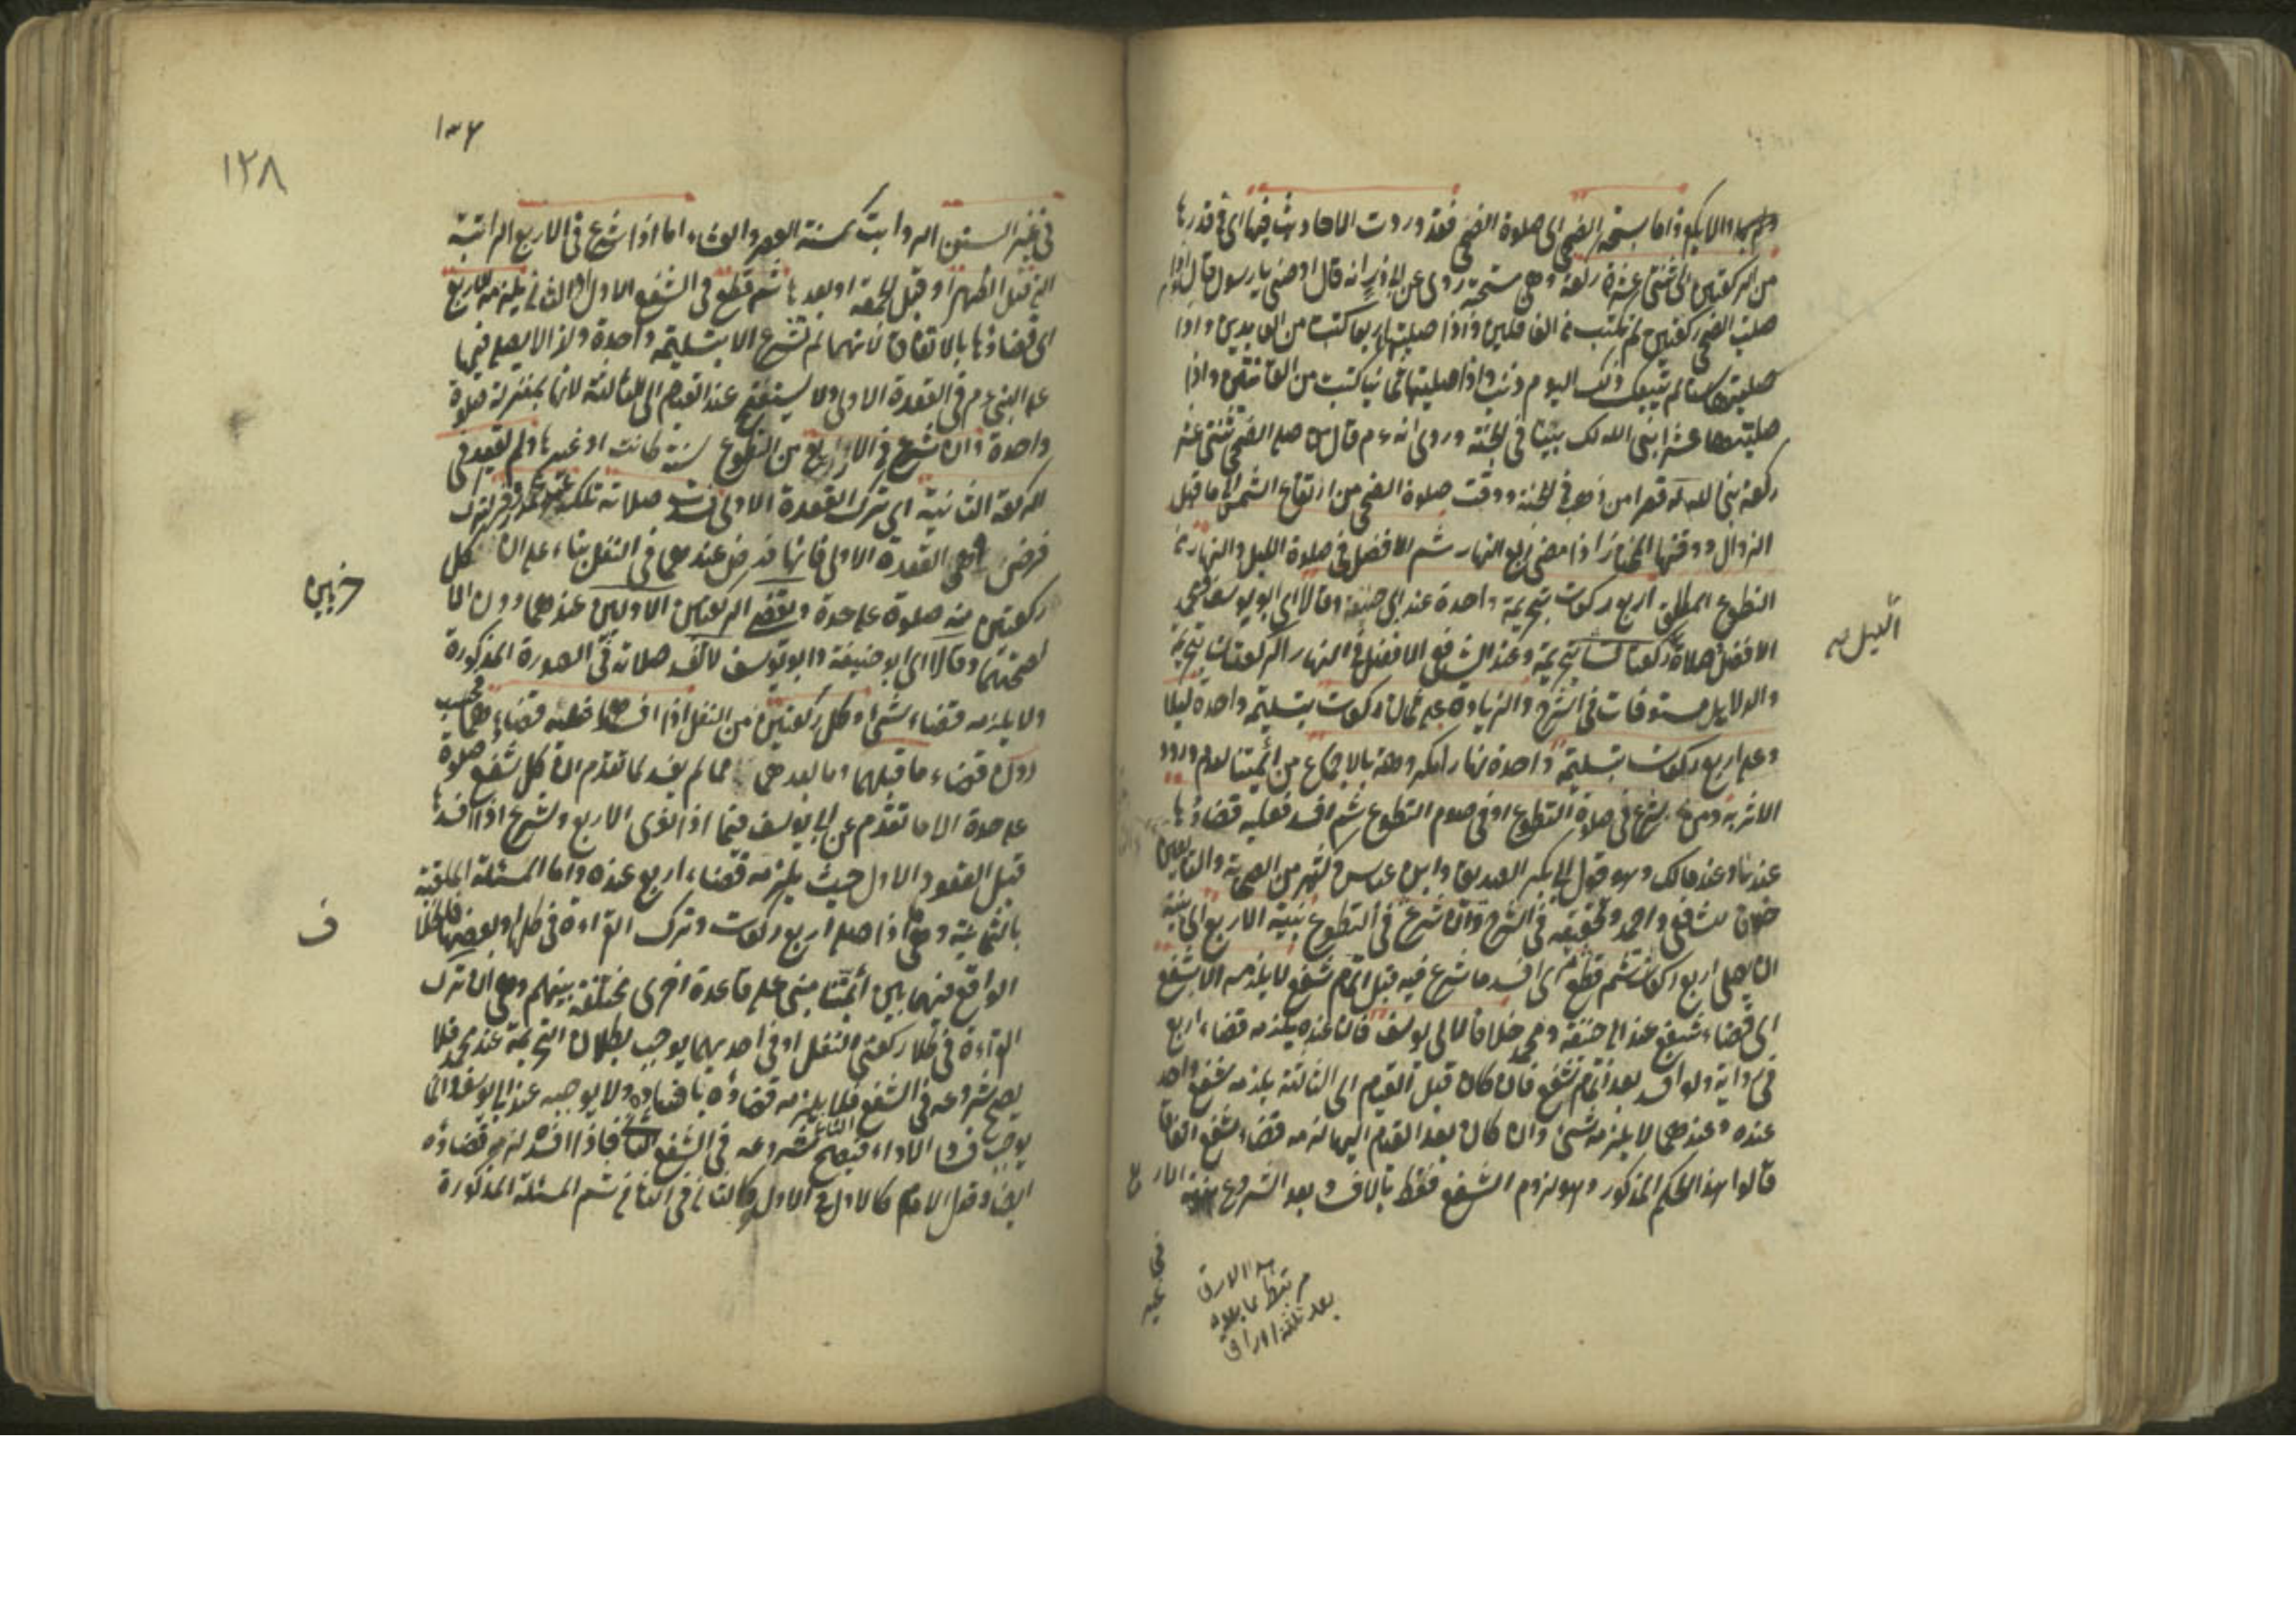 والا يكره واما سنة الضحى اى صلوة الضحى فقد وردت الاحاديث فيها اى فى قدرها
من الركعتين الى ثنتى عشرة ركعة وهى مستحبة روى عن ابى ذر انه قال اوصنى يا رسول قال اذا
صليت الضحى ركعتين لم تكتب من الغافلين واذا صليتها اربعا كتبت من العابدين واذا
صليتها ستا لم يتبعك ذلك اليوم ذنب واذا صليتها ثمانيا كتبت من القانتين واذا
صليتها عشرا بنى الله لك بيتا فى الجنة وروى انه ع م قال من صلى الضحى ثنتى عشر
ركعة بنى الله له قصرا من ذهب فى الجنة ووقت صلوة الضحى من ارتفاع الشمس الى ما قبل
الزوال ووقتها المختار اذا مضى ربع النهار ثم الافضل فى صلوة الليل والنهار من
التطوع المطلق اربع ركعات بتحريمة واحدة عند ابى حنيفة وقالا اى ابو يوسف ومحمد
الافضل صلاة ركعتان بتحريمة وعند الشافعى الافضل فى النهار الركعتان بتحريمة
الليل
والدلايل مستوفات فى الشرح والزيادة على ثمان ركعات بتسليمة واحدة ليلا
وعلى اربع ركعات بتسليمة واحدة نهارا مكروهة بالاجماع من ائمتنا لعدم ورود
الاثر به ومن شرع فى صلاة التطوع او فى صوم التطوع ثم افسد فعليه قضاؤها
عندنا وعند مالك وهو قول ابى بكر الصديق وابن عباس وكثير من الصحابة والتابعين
خلافا للشافعى واحمد وتحقيقه فى الشرح وان شرع فى التطوع بنية الاربع اى بنية
ان يصلى اربع ركعات ثم قطع اى افسد ما شرع فيه قبل اتمام شفع لا يلزمه الا شفع
اى قضاء شفع عند ابى حنيفة ومحمد خلافا لابى يوسف فان عنده يلزمه قضاء اربع
فى رواية ولو افسد بعد اتمام شفع فان كان قبل القيام الى الثالثة يلزمه شفع واحد
عنده وعندهما لا يلزمه شئ وان كان بعد القيام اليها لزمه قضاء شفع اتفاقا
قالوا هذا الحكم المذكور وهو لزوم الشفع فقط بالافساد بعد الشروع بنية الاربع
هذا الورق
مرتبط بما بعده
بعد ثلثة اوراق
١٣٦
١٢٨
فى غير السنن الرواتب كسنة العصر والعشاء اما اذا شرع فى الاربع الراتبة
التى قبل الظهر او قبل الجمعة او بعدها ثم قطع فى الشفع الاول او الثانى يلزمه الاربع
اى قضاؤها بالاتفاق لانها لم تشرع الا بتسليمة واحدة ولذا لا يصلى فيها
على النبى ع م فى القعدة الاولى ولا يستفتح عند القيام الى الثالثة لانها بمنزلة صلوة
واحدة وان شرع فى الاربع من التطوع سنة كانت او غيرها ولم يقعد فى
الركعة الثانية اى ترك القعدة الاولى فسدت صلاته تلك عند محمد وزفر لترك
فرض وهى القعدة الاولى فانها فرض عندهما فى النفل بناء على ان كل
ركعتين منه صلوة على حدة ويقضى الركعتين الاوليين عندهما دون الا
خريين
لصحتهما وقالا اى ابو حنيفة وابو يوسف لا تفسد صلاته فى الصورة المذكورة
ولا يلزمه قضاء شئ وكل ركعتين من النفل اذا افسدهما فعليه قضاءهما فحسب
دون قضاء ما قبلهما وما بعدهما مما لم يفسد لما تقدم ان كل شفع صلوة
على حدة الا ما تقدم عن ابى يوسف فيما اذا نوى الاربع وشرع اذا افسدها
قبل القعود الاول حيث يلزمه قضاء اربع عنده واما المسئلة الملقبة
ف
بالثمانية وهى ما اذا صلى اربع ركعات وترك القراءة فى كلها او بعضها فالخلاف
الواقع فيها بين أئمتنا مبنى على قاعدة اخرى مختلفة بينهم وهى ان ترك
القراءة فى كلا ركعتى النفل او فى احديهما يوجب بطلان التحريمة عند محمد فلا
يصح شروعه فى الشفع الثانى فلا يلزمه قضاؤه بافساده ولا يوجبه عند ابى يوسف وانما
يوجب فساد الاداء فيصح شروعه فى الشفع الثانى فاذا افسده لزمه قضاؤه
ايضا وقول الامام كالاول فى الاول وكالثانى فى الثانى ثم المسئلة المذكورة